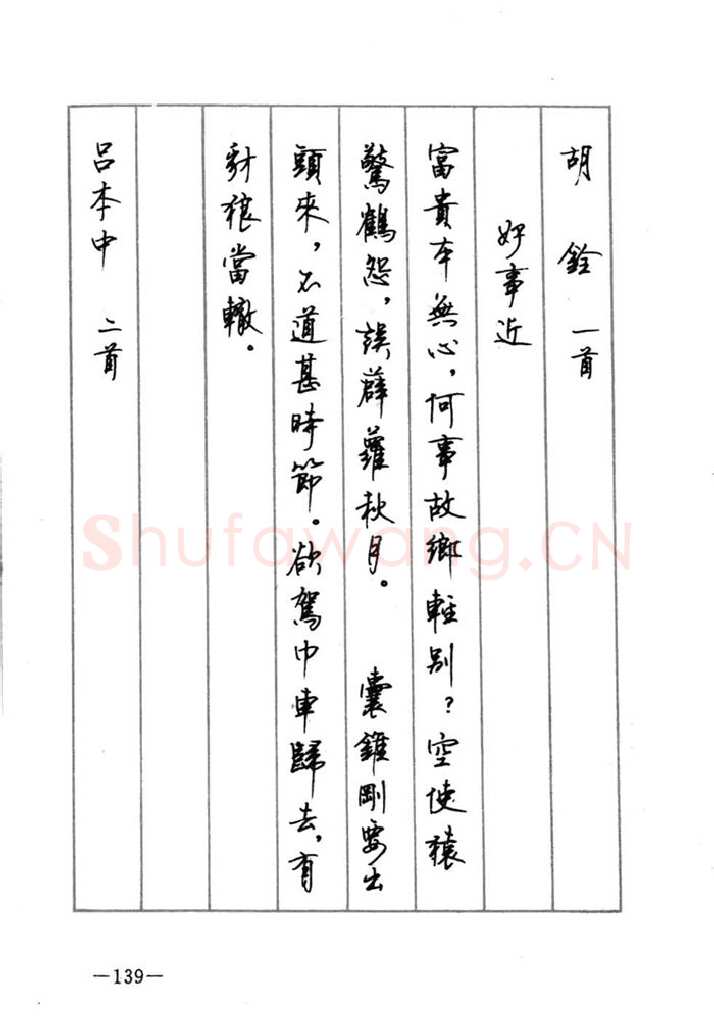 胡 銓 一首
好事近
富貴本無心，何事故鄉輕別？空使猿
驚鶴怨，誤薜蘿秋月。 囊錐剛要出
頭來，不道甚時節。欲駕巾車歸去，有
豺狼當轍。
呂本中 二首
—139—
Shufawang.CN